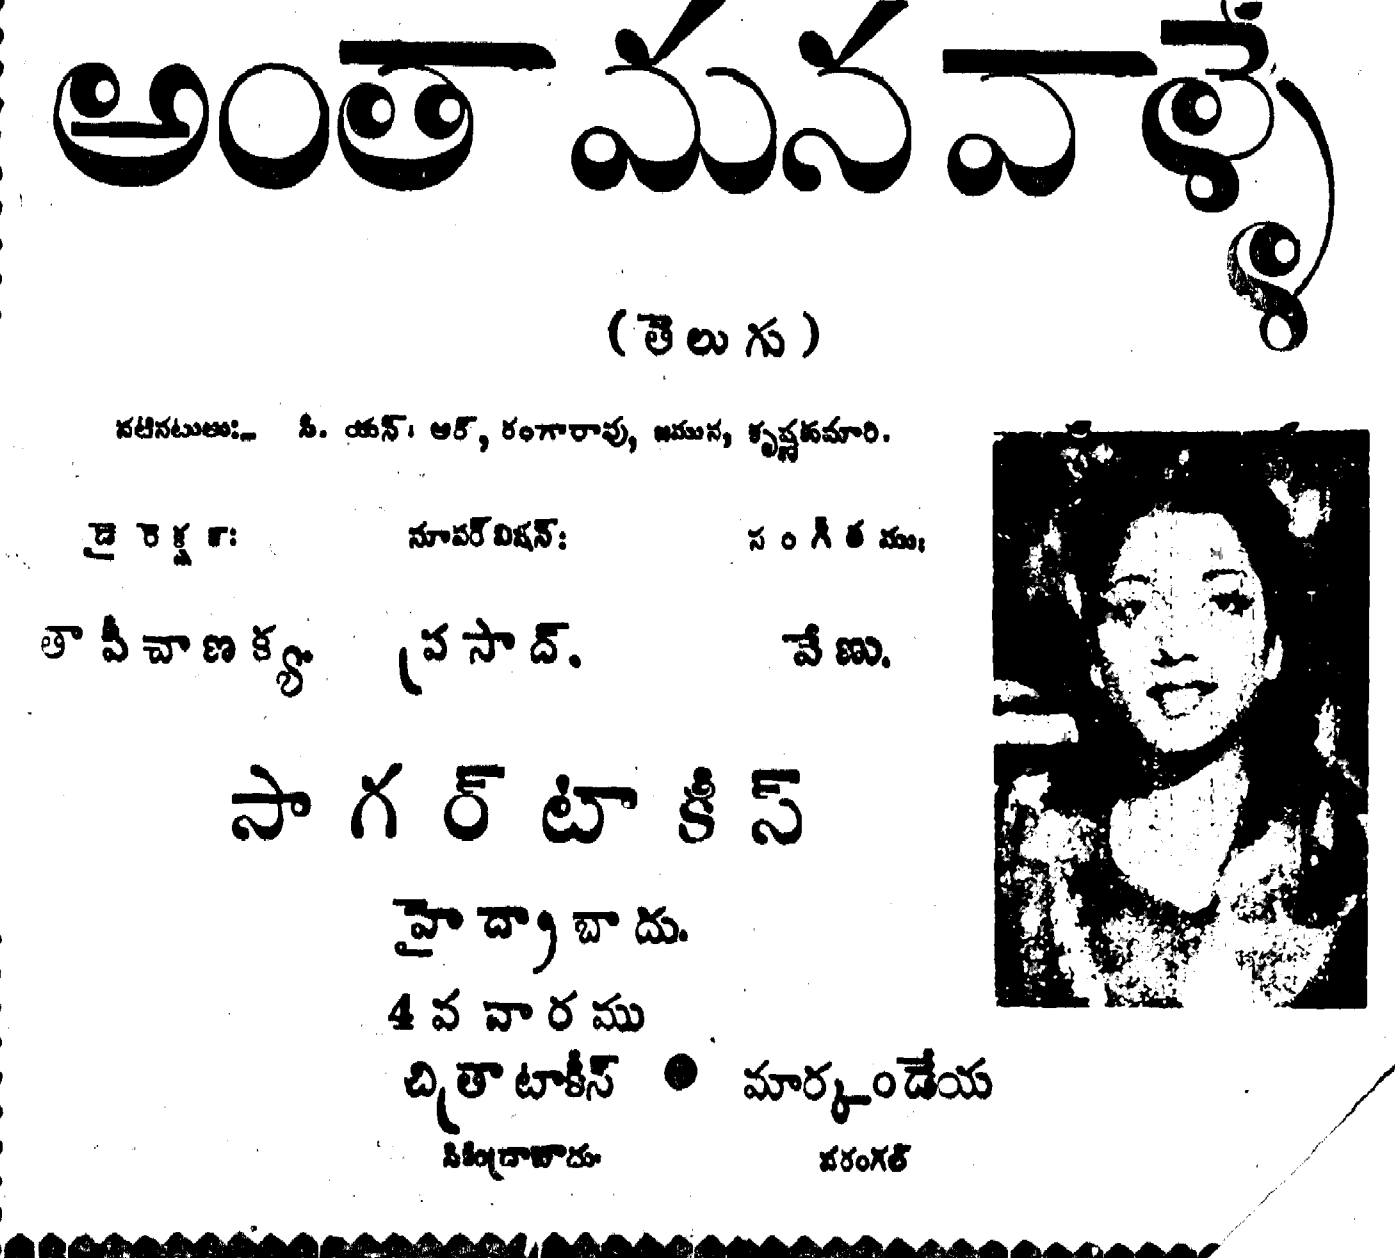 అంతా మనవాళ్ళే
(తెలుగు)
నటీనటులు:_ సి. యస్: ఆర్, రంగారావు, జమున, కృష్ణకుమారి.
డైరెక్షన్: సూపర్‌విషన్: సంగీతము:
తాపీచాణక్య. ప్రసాద్. వేణు.
సాగర్ టాకీస్
హైద్రాబాదు.
4వ వారము
చిత్రాటాకీస్ ● మార్కండేయ
సికింద్రాబాదు. వరంగల్